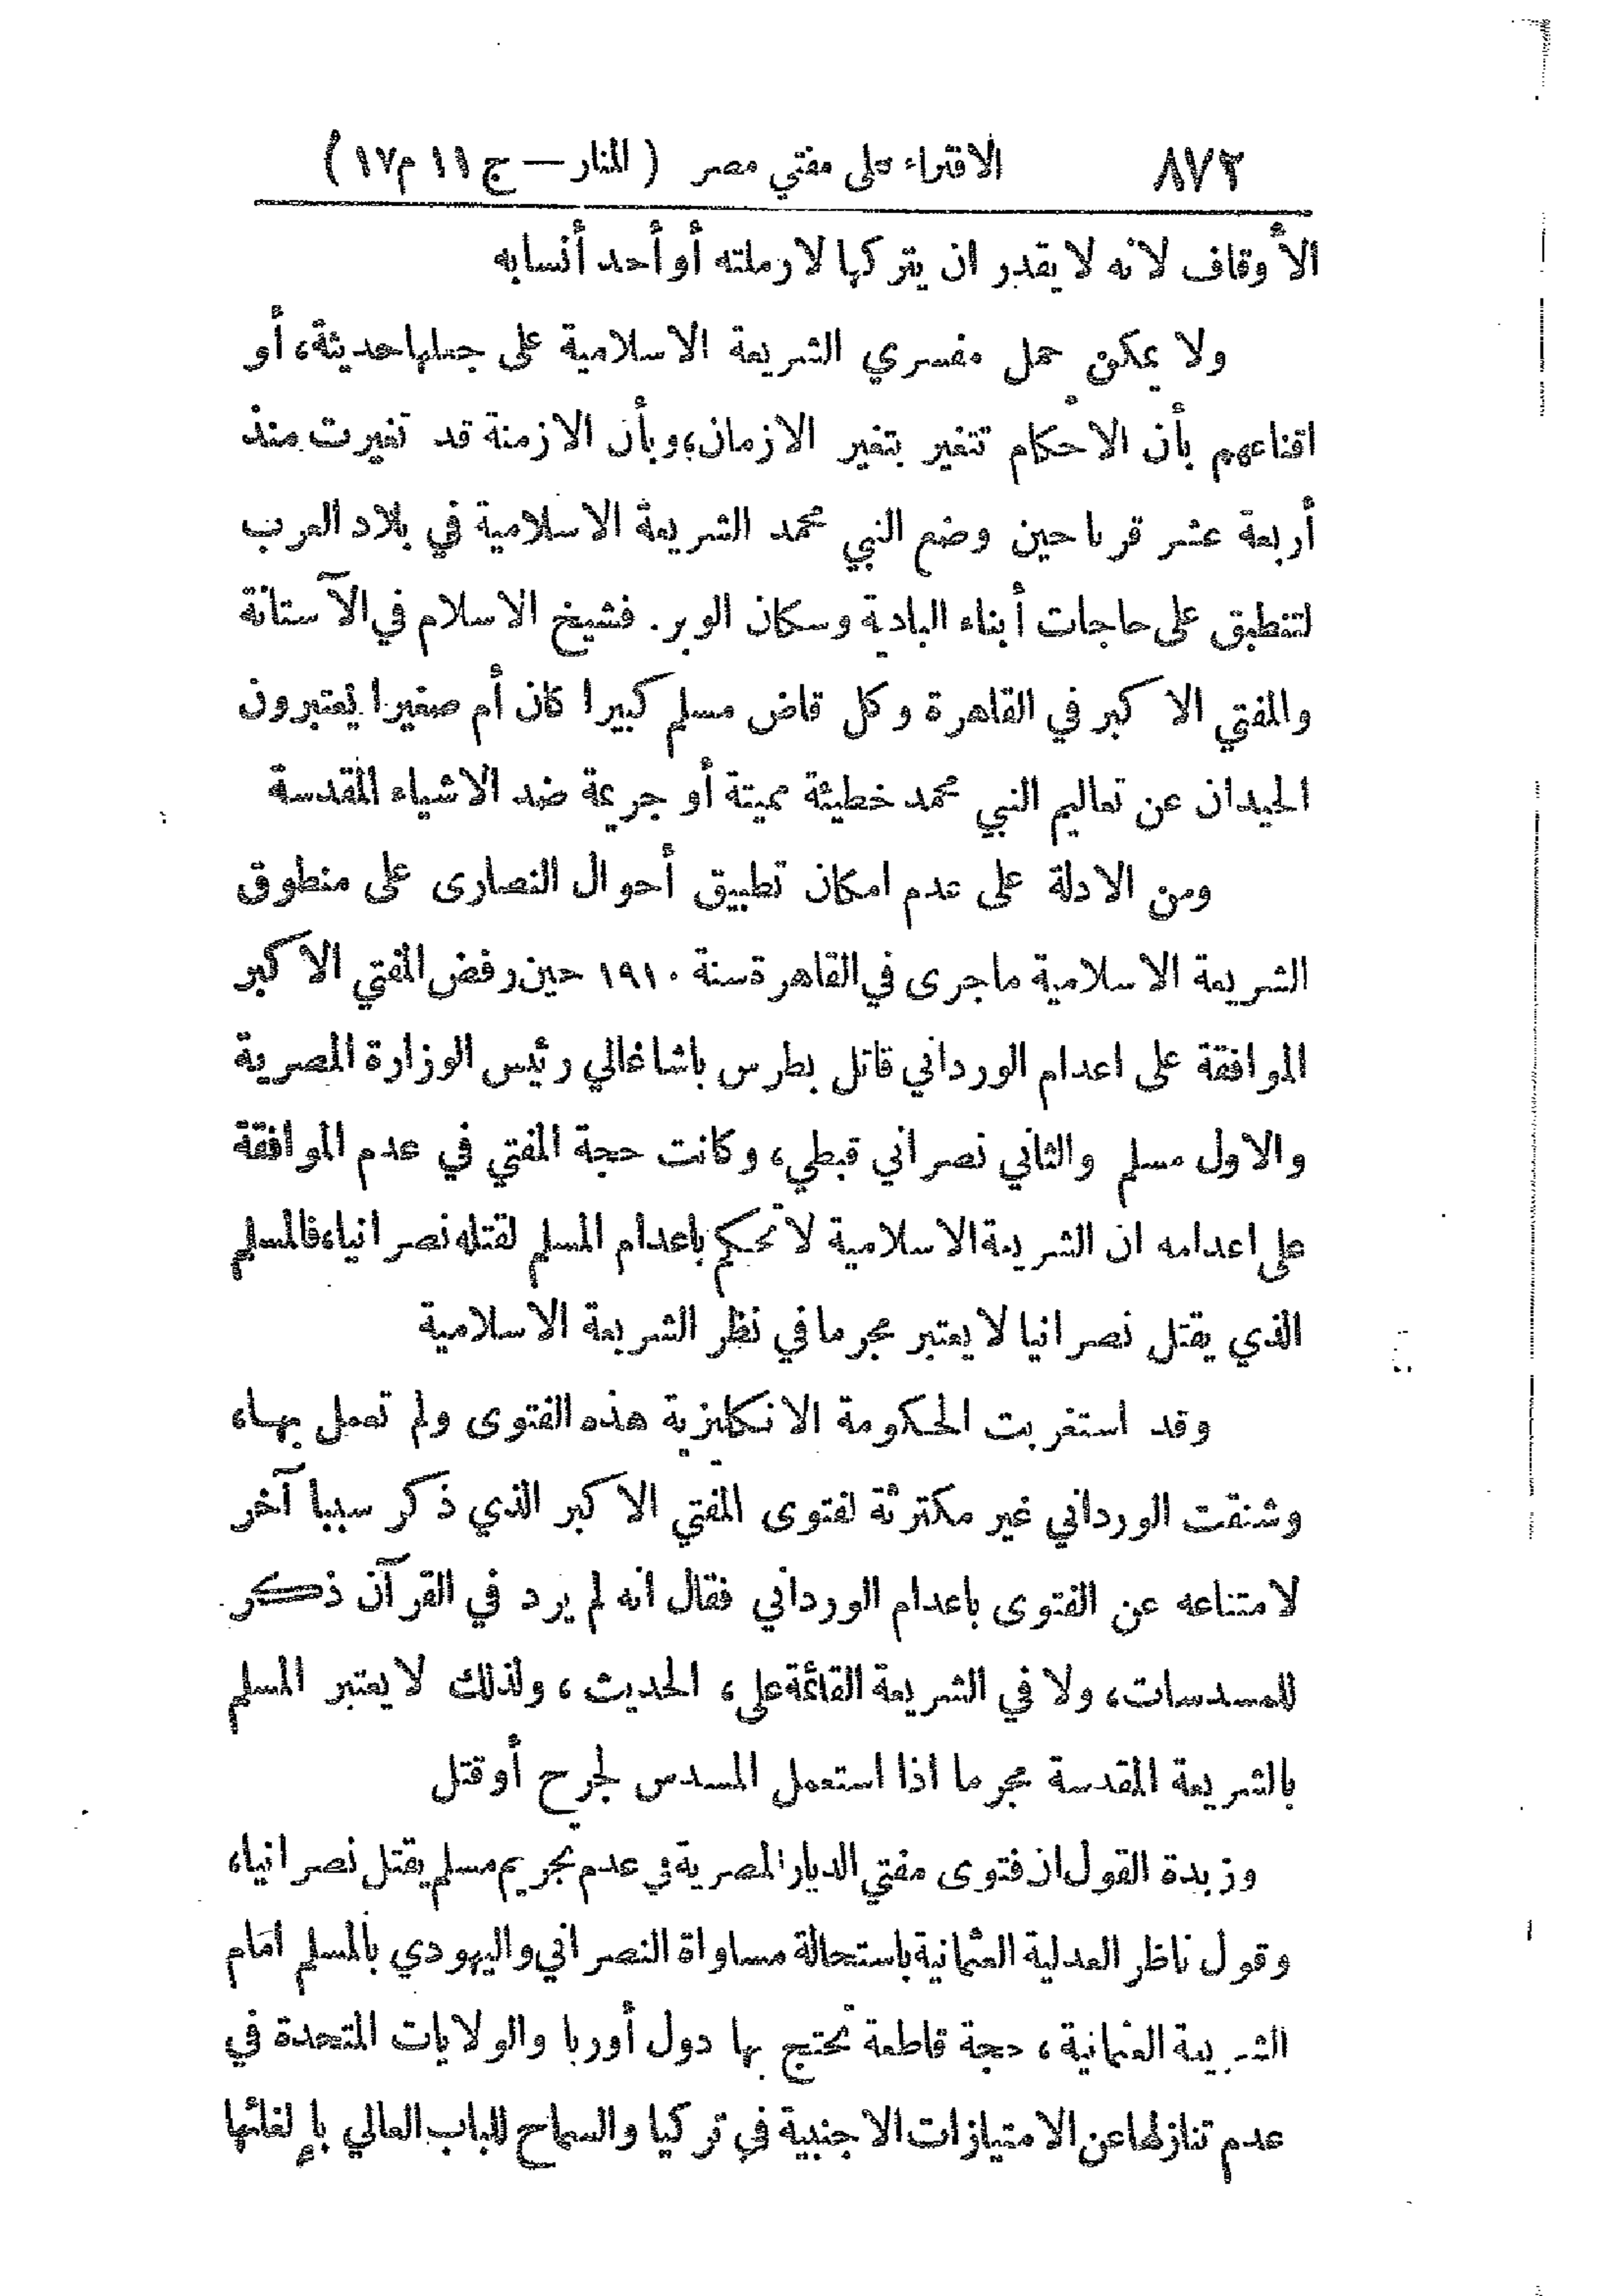 ٨٧٢ الافتراء على مفتي مصر (المنار — ج ١١ م ١٧)
الأوقاف لانه لا يقدر ان يتركها لارملته أو أحد أنسابه
ولا يمكن حمل مفسري الشريعة الاسلامية على جعلها حديثة، أو
اقناعهم بأن الاحكام تتغير بتغير الازمان، وبأن الازمنة قد تغيرت منذ
أربعة عشر قرنا حين وضع النبي محمد الشريعة الاسلامية في بلاد العرب
لتنطبق على حاجات أبناء البادية وسكان الوبر. فشيخ الاسلام في الآستانة
والمفتي الاكبر في القاهرة وكل قاض مسلم كبيرا كان أم صغيرا يعتبرون
الحيدان عن تعاليم النبي محمد خطيئة مميتة أو جريمة ضد الاشياء المقدسة
ومن الادلة على عدم امكان تطبيق أحوال النصارى على منطوق
الشريعة الاسلامية ما جرى في القاهرة سنة ١٩١٠ حين رفض المفتي الاكبر
الموافقة على اعدام الورداني قاتل بطرس باشا غالي رئيس الوزارة المصرية
والاول مسلم والثاني نصراني قبطي، وكانت حجة المفتي في عدم الموافقة
على اعدامه ان الشريعة الاسلامية لا تحكم باعدام المسلم لقتله نصرانيا، فالمسلم
الذي يقتل نصرانيا لا يعتبر مجرما في نظر الشريعة الاسلامية
وقد استغربت الحكومة الانكليزية هذه الفتوى ولم تعمل بها،
وشنقت الورداني غير مكترثة لفتوى المفتي الاكبر الذي ذكر سببا آخر
لامتناعه عن الفتوى باعدام الورداني فقال انه لم يرد في القرآن ذكر
للمسدسات، ولا في الشريعة القائمة على، الحديث، ولذلك لا يعتبر المسلم
بالشريعة المقدسة مجرما اذا استعمل المسدس لجرح أو قتل
وزبدة القول ان فتوى مفتي الديار المصرية في عدم تجريم مسلم يقتل نصرانيا،
وقول ناظر العدلية العثمانية باستحالة مساواة النصراني واليهودي بالمسلم امام
الشريعة العثمانية، حجة قاطعة تحتج بها دول أوربا والولايات المتحدة في
عدم تنازلها عن الامتيازات الاجنبية في تركيا والسماح للباب العالي بإلغائها